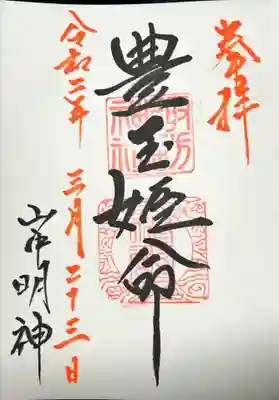 奉拝
豊玉姫命
令和三年
三月二十三日
山中明神